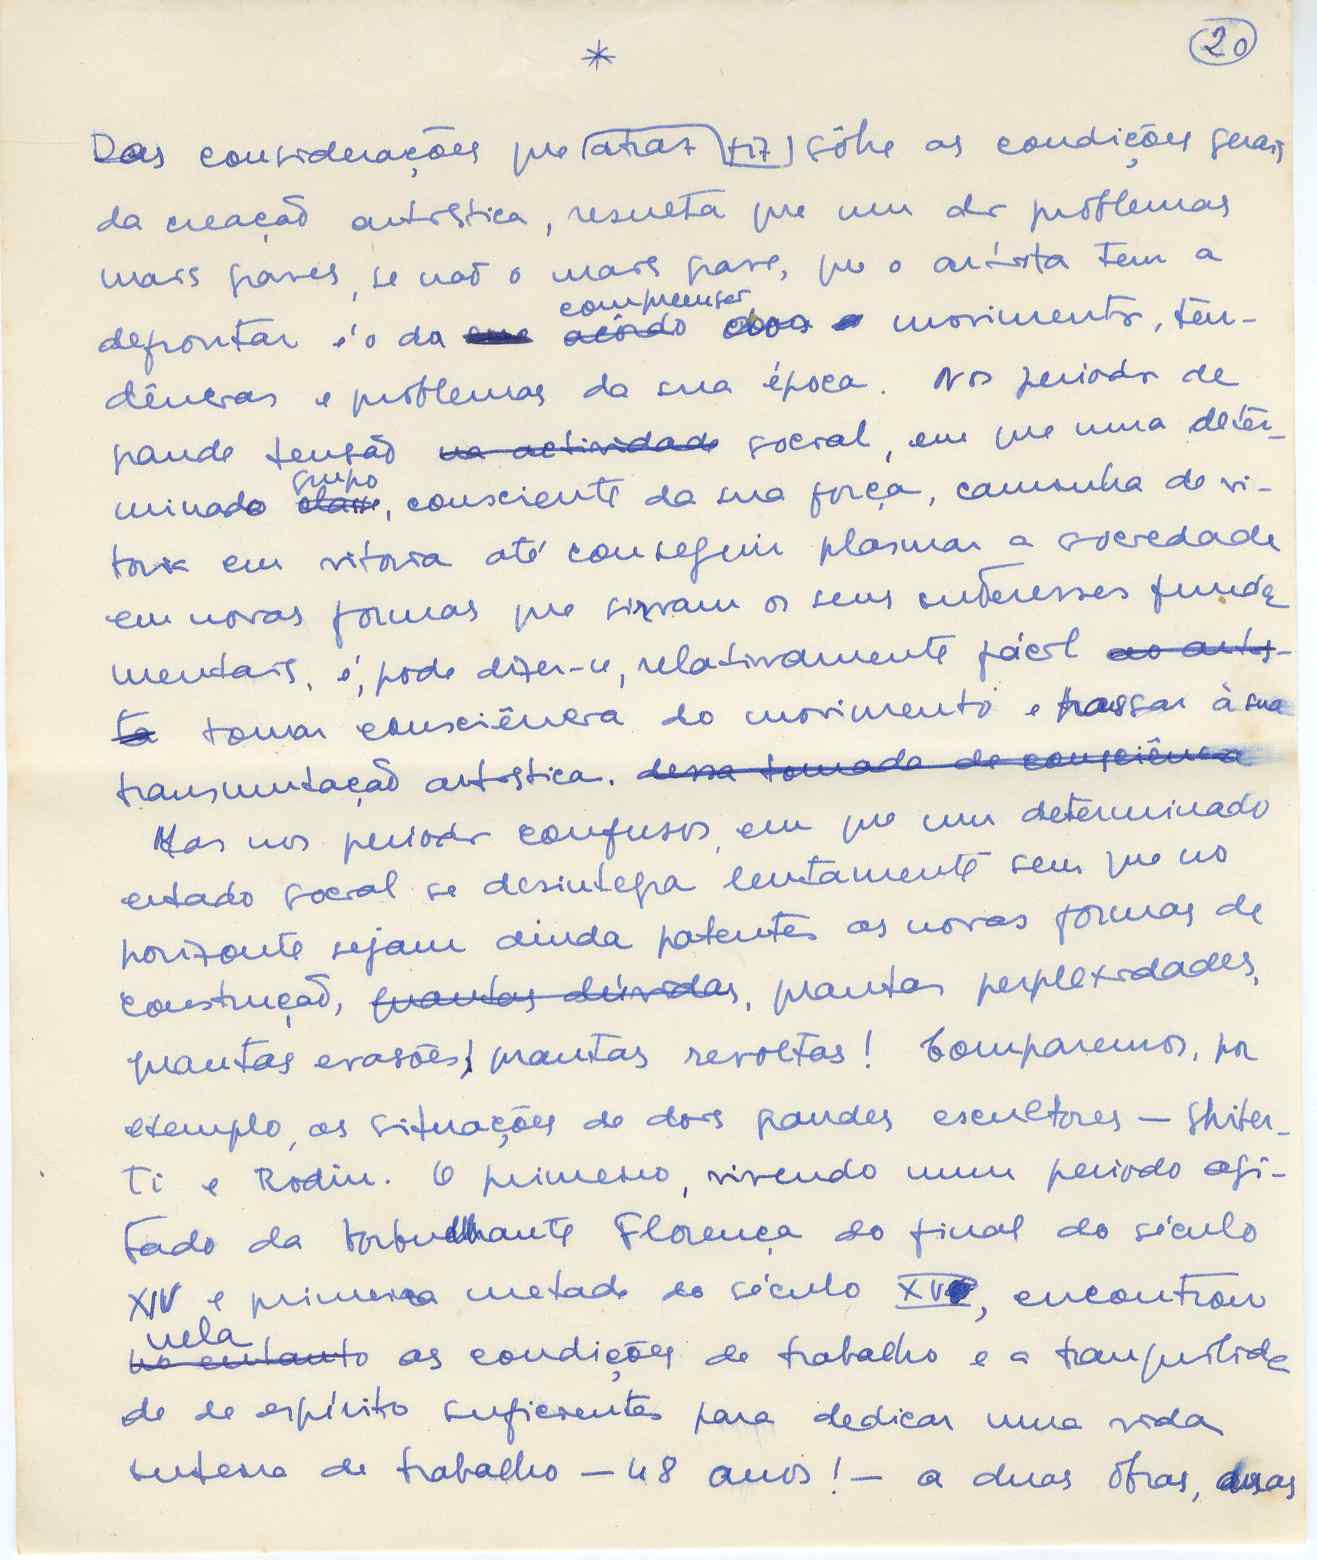 20
*
Das considerações que atraz fiz sôbre as condições gerais
da creação artistica, resulta que um dos problemas
mais graves, se não o mais grave, que o artista tem a
compreensão
defrontar é o da acôrdo movimentos, ten-
dências e problemas da sua época. Nos periodos de
grande tensão na actividade social, em que uma deter-
grupo
minado classe, consciente da sua força, caminha de vi-
toria em vitoria até conseguir plasmar a sociedade
em novas formas que sirvam os seus interesses funda
mentais, é, pode dizer-se, relativamente fácil ao artis-
ta tomar consciência do movimento e passar à sua
transmutação artistica. dessa tomada de consciência
Mas nos periodos confusos, em que um determinado
estado social se desintegra lentamente sem que no
horizonte sejam ainda patentes as novas formas de
construção, quantas dúvidas, quantas perplexidades,
quantas evasões, quantas revoltas! Comparemos, por
exemplo, as situações de dois grandes escultores — Ghiber-
ti e Rodin. O primeiro, vivendo num periodo agi-
tado da torbulhante Florença do final do século
XIV e primeira metade do século XV, encontrou
nela
no entanto as condições de trabalho e a tranquilida
de de espírito suficientes para dedicar uma vida
inteira de trabalho — 48 anos! — a duas obras, duas